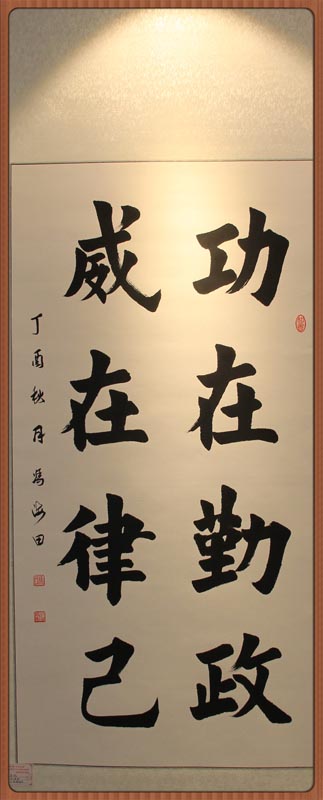 功在勤政
威在律己
丁酉秋月冯海田